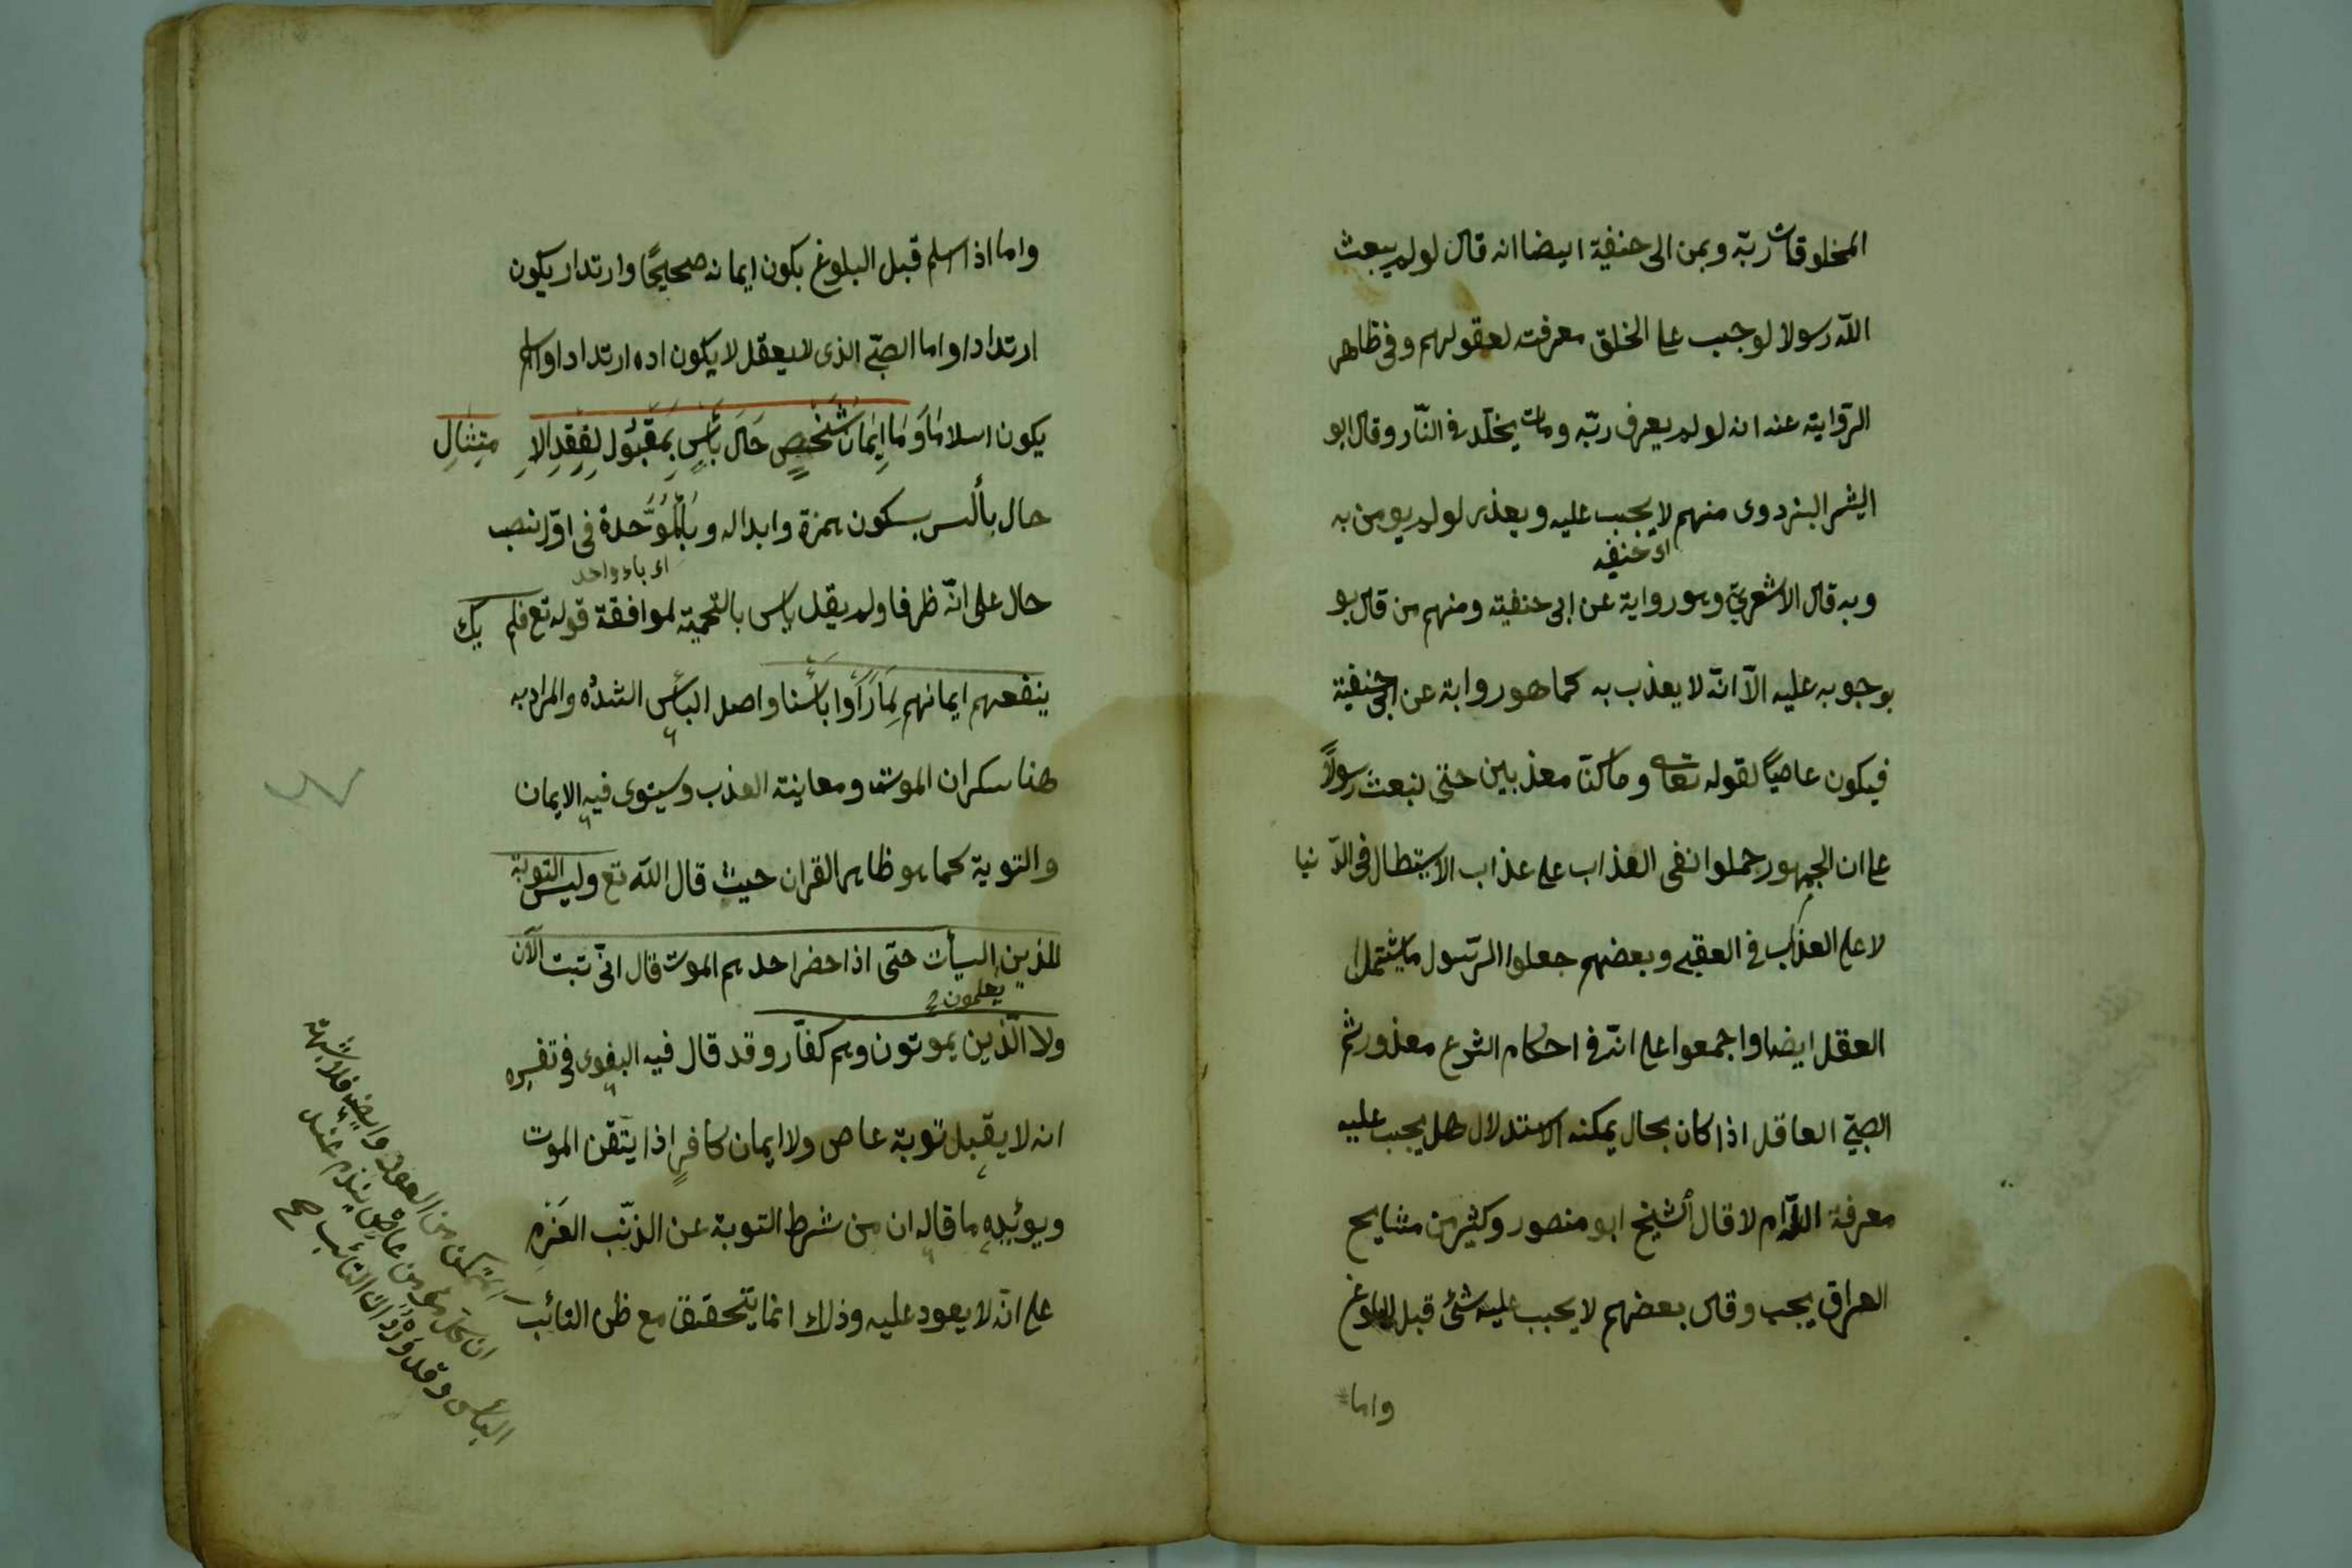 المخلوقات ربّه وبمن الى حنفية ايضا انه قال لو لم يبعث
الله رسولا لوجب على الخلق معرفته لعقولهم وفى ظاهر
الرّواية عنه انه لو لم يعرف ربّه ومات يخلّد فى النّار وقال ابو
اليشر البزدوى منهم لا يجب عليه ويعذر لو لم يومن به
اى حنفيه
وبه قال الاشعريّ وهو رواية عن ابى حنفية ومنهم من قال بو
بوجوبه عليه الّا انّه لا يعذب به كما هو رواية عن ابى حنفية
فيكون عاصيًا لقوله تعالى وما كنّا معذبين حتّى نبعث رسولًا
على ان الجمهور حملوا نفى العذاب على عذاب الاستطال فى الدّنيا
لا على العذاب فى العقبى وبعضهم جعلوا الرّسول ما يشتمل
العقل ايضا واجمعوا على انّه فى احكام الشرع معذور ثم
الصبيّ العاقل اذا كان بحال يمكنه الاستدلال هل يجب عليه
معرفة الله ام لا قال الشيخ ابو منصور وكثير من مشايخ
العراق يجب وقال بعضهم لا يجب عليه شئ قبل البلوغ
واما
واما اذا اسلم قبل البلوغ يكون ايمانه صحيحًا وارتدار يكون
ارتدادا واما الصبّى الذى لا يعقل لا يكون اده ارتدادا واسلام
يكون اسلامًا وَمَا إِيمَانُ شَخْصٍ حَالَ بَأْسٍ بِمَقْبُولٍ لِفَقْدِ الِامْتِثَالِ
حال بألس بسكون همزة وابداله وبالمُوَحّدة فى اوّل نصب
اى باء واحد
حال على انّه ظرفا ولم يقل ياس بالتحمية لموافقة قوله تع فلم يك
ينفعهم ايمانهم لمّا رَأَوا بأسنا واصل البأس الشدّه والمراد به
هنا سكران الموت ومعاينة العذب وسيتوى فيه الايمان
والتوبة كما هو ظاهر القران حيث قال الله تع وليس التوبة
للذين السيأت حتى اذا حضر احدهم الموت قال انّى تبت الآن
يعلمون
ولا الّذين يموتون وهم كفّار وقد قال فيه البغوى فى تفسره
انه لا يقبل توبة عاص ولا ايمان كافرٍ اذا يتقن الموت
ويوئيده ما قاله ان من شرط التوبة عن الذنب العَزْم
على انّه لا يعود عليه وذلك انما يتحقق مع ظن التائب
التمكن من العود وايضٍ فلا شبهة
ان كل مؤمن عاصٍ يندم عند
البأس وقد وَرَدَ ان التائب صح